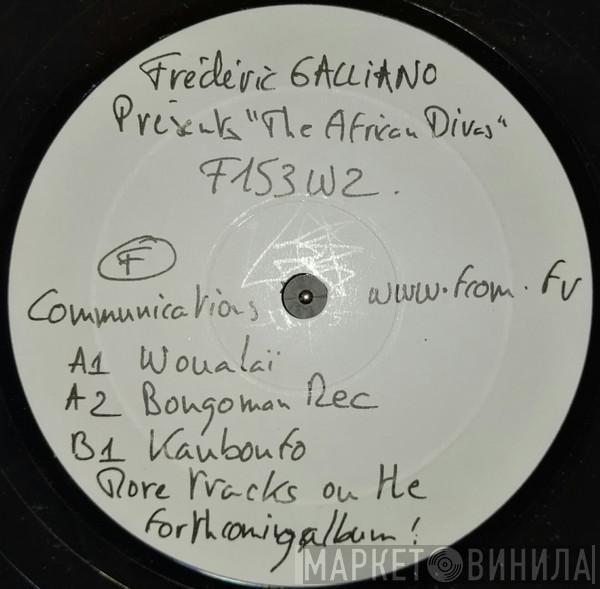 Frédéric GALLIANO
Présents "The African Divas"
F153W2.
F
Communications
www.fcom.fr
A1 Woualaï
A2 Bongoman Rec
B1 Kanbonfo
More tracks on the
forthcoming album!
МАРКЕТ ВИНИЛА